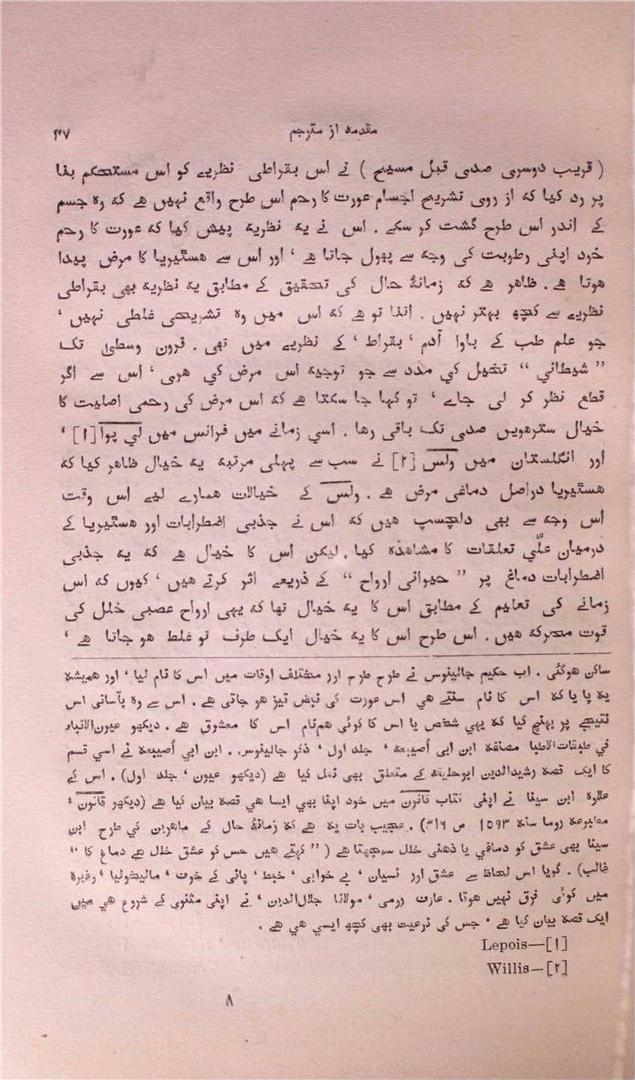 مقدمہ از مترجم ۴۲۷
( قریب دوسری صدی قبل مسیح ) نے اس بقراطی نظریے کو اس مستحکم بنا
پر رد کیا کہ از روی تشریح اجسام عورت کا رحم اس طرح واقع نہیں ھے کہ وہ جسم
کے اندر اس طرح گشت کر سکے . اس نے یہ نظریہ پیش کیا کہ عورت کا رحم
خود اپنی رطوبت کی وجہ سے پھول جاتا ھے ' اور اس سے ھسٹیریا کا مرض پیدا
ھوتا ھے . ظاھر ھے کہ زمانۂ حال کی تحقیق کے مطابق یہ نظریہ بھی بقراطی
نظریے سے کچھ بہتر نہیں . اتنا تو ھے کہ اس میں وہ تشریحی غلطی نہیں '
جو علم طب کے باوا آدم ' بقراط ' کے نظریے میں تھی . قرون وسطیٰ تک
” شیطانی “ تخیل کی مدد سے جو توجیہ اس مرض کی ھوی ' اس سے اگر
قطع نظر کر لی جاے ' تو کہا جا سکتا ھے کہ اس مرض کی رحمی اصلیت کا
خیال سترھویں صدی تک باقی رھا . اسی زمانے میں فرانس میں لی پوا [۱] '
اور انگلستان میں ولس [۲] نے سب سے پہلی مرتبہ یہ خیال ظاھر کیا کہ
ھسٹیریا دراصل دماغی مرض ھے . ولس کے خیالات ھمارے لیے اس وقت
اس وجہ سے بھی دلچسپ ھیں کہ اس نے جذبی اضطرابات اور ھسٹیریا کے
درمیان علّی تعلقات کا مشاھدہ کیا . لیکن اس کا خیال ھے کہ یہ جذبی
اضطرابات دماغ پر ” حیوانی ارواح “ کے ذریعے اثر کرتے ھیں ' کیوں کہ اس
زمانے کی تعلیم کے مطابق اس کا یہ خیال تھا کہ یہی ارواح عصبی خلل کی
قوت محرکہ ھیں . اس طرح اس کا یہ خیال ایک طرف تو غلط ھو جاتا ھے '
ساکن ھوگئی . اب حکیم جالینوس نے طرح طرح اور مختلف اوقات میں اس کا نام لیا ' اور ھمیشہ
یہ پا یا کہ اس کا نام سنتے ھی اس عورت کی نبض تیز ھو جاتی ھے . اس سے وہ بآسانی اس
نتیجے پر پہنچ گیا کہ یہی شخص یا اس کا کوئی ھم نام اس کا معشوق ھے . دیکھو عیون الانباء
فی طبقات الاطبا مصنفہ ابن ابی اُصیبعہ ' جلد اول ' ذکر جالینوس . ابن ابی اُصیبعہ نے اسی قسم
کا ایک قصہ رشیدالدین ابوحلیقہ کے متعلق بھی نقل کیا ھے (دیکھو عیون ' جلد اول) . اس کے
علاوہ ابن سینا نے اپنی کتاب قانون میں خود اپنا بھی ایسا ھی قصہ بیان کیا ھے (دیکھو قانون '
مطبوعہ روما سنہ 1593 ص ۳۱۶) . عجیب بات یہ ھے کہ زمانۂ حال کے ماھرین کی طرح ابن
سینا بھی عشق کو دماغی یا ذھنی خلل سمجھتا ھے ( ” کہتے ھیں جس کو عشق خلل ھے دماغ کا “
غالب) . گویا اس لحاظ سے عشق اور نسیان ' بے خوابی ' خبط ' پانی کے خوف ' مالیخولیا ' وغیرہ
میں کوئی فرق نہیں ھوتا . عارف رومی ' مولانا جلال الدین ' نے اپنی مثنوی کے شروع ھی میں
ایک قصہ بیان کیا ھے ' جس کی نوعیت بھی کچھ ایسی ھی ھے .
Lepois—[۱]
Willis—[۲]
۸